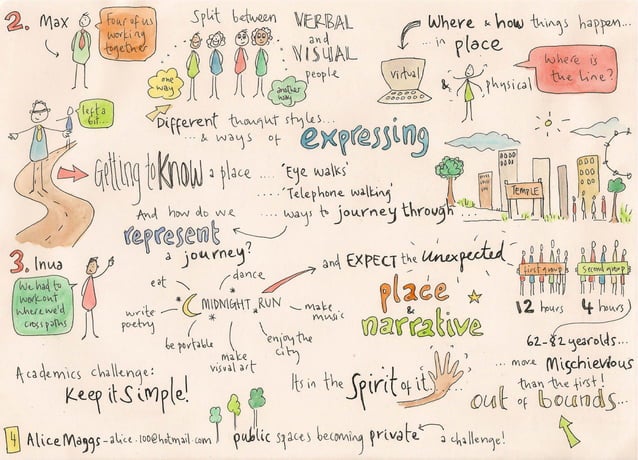 2. Max
Four of us
working
together
Split between VERBAL
and
VISUAL
people
one
way
another
way
Where & how things happen...
... in place
virtual
& physical
Where is
the line?
Different thought styles...
... & ways of expressing
left a
bit...
Getting to Know a place .... 'Eye walks'
.... 'Telephone walking'
.... ways to journey through ...
TEMPLE
And how do we
represent
a journey?
3. Inua
We had to
work out
where we'd
cross paths
MIDNIGHT RUN
eat
dance
make
music
enjoy the
city
make
visual art
be portable
write
poetry
and EXPECT the Unexpected
place
&
narrative
first group
second group
12 hours
4 hours
62-82 year olds...
... more Mischievious
than the first!
out of bounds...
Academics challenge:
Keep it Simple!
Its in the Spirit of it..
4 Alice Maggs - alice.100@hotmail.com
public spaces becoming private
a challenge!